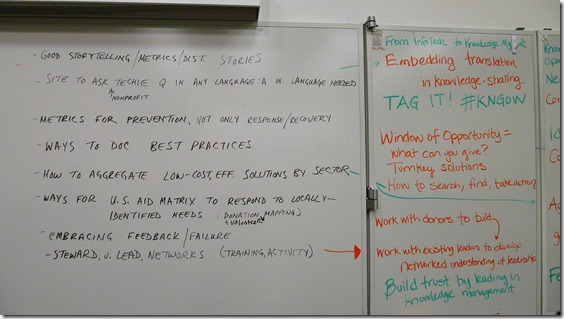 - GOOD STORYTELLING/METRICS/DIST. STORIES
- SITE TO ASK TECHIE Q IN ANY LANGUAGE: A IN LANGUAGE NEEDED
^ NONPROFIT
- METRICS FOR PREVENTION, NOT ONLY RESPONSE/RECOVERY
- WAYS TO DOC BEST PRACTICES
- HOW TO AGGREGATE LOW-COST, EFF. SOLUTIONS BY SECTOR
- WAYS FOR U.S. AID MATRIX TO RESPOND TO LOCALLY-
IDENTIFIED NEEDS (DONATION MAPPING)
+ VOLUNTEER
- EMBRACING FEEDBACK/FAILURE
- STEWARD, V. LEAD, NETWORKS (TRAINING, ACTIVITY)
From InfoTech to Knowledge
Embedding translation
in knowledge-sharing.
TAG IT! #KNGOW
Window of Opportunity =
what can you give?
Turnkey solutions
How to search, find, take action
Work with donors to build
Work with existing leaders to develop
Networked understanding of leadership
Build trust by leading in
knowledge management